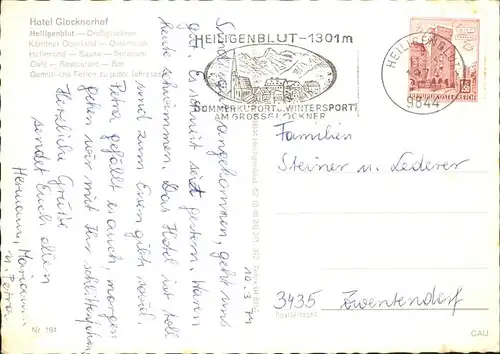 Hotel Glocknerhof
Heiligenblut — Großglockner
Kärnten
Hallenbad — Sauna — Solarium
Café — Restaurant — Bar
Gemütliche Ferien zu jeder Jahreszeit
HEILIGENBLUT - 1301 m
SOMMERKURORT u. WINTERSPORT
AM GROSSGLOCKNER
HEILIGENBLUT
9844
REPUBLIK ÖSTERREICH
10. 3. 74
Sind gut angekommen, geht uns
gut. Es schneit seit gestern. Waren
heute schwimmen. Das Hotel ist toll
und zum Essen gibts viel.
Petra gefällt es auch, morgen
gehen wir mit ihr schlittenfahren
Herzliche Grüße
sendet Euch allen
Hermann, Mariann
u. Petra
Familien
Steiner u. Lederer
3435 Zwentendorf
Postleitzahl
Nr. 184
CAU